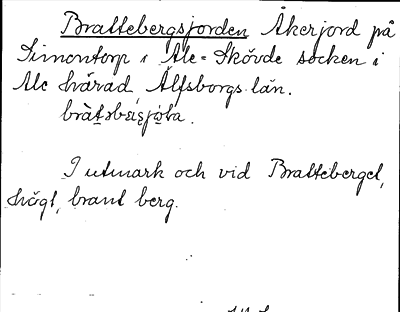 Brattebergsjorden Åkerjord på
Simontorp i Ale-Skövde socken i
Ale härad Älfsborgs län.
I utmark och vid Bratteberget,
högt, brant berg.